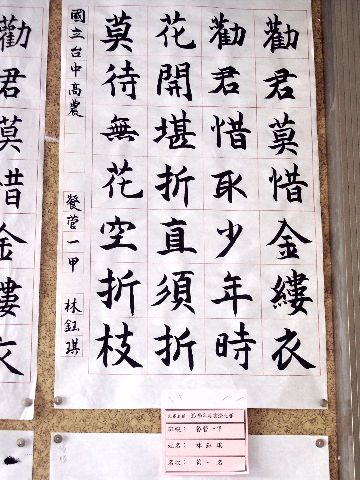 勸君莫惜金縷衣
勸君惜取少年時
花開堪折直須折
莫待無花空折枝
國立台中高農
餐管一甲 林鈺琪
勸君莫惜金縷衣
班級：餐管一甲
姓名：林鈺琪
名次：第一名